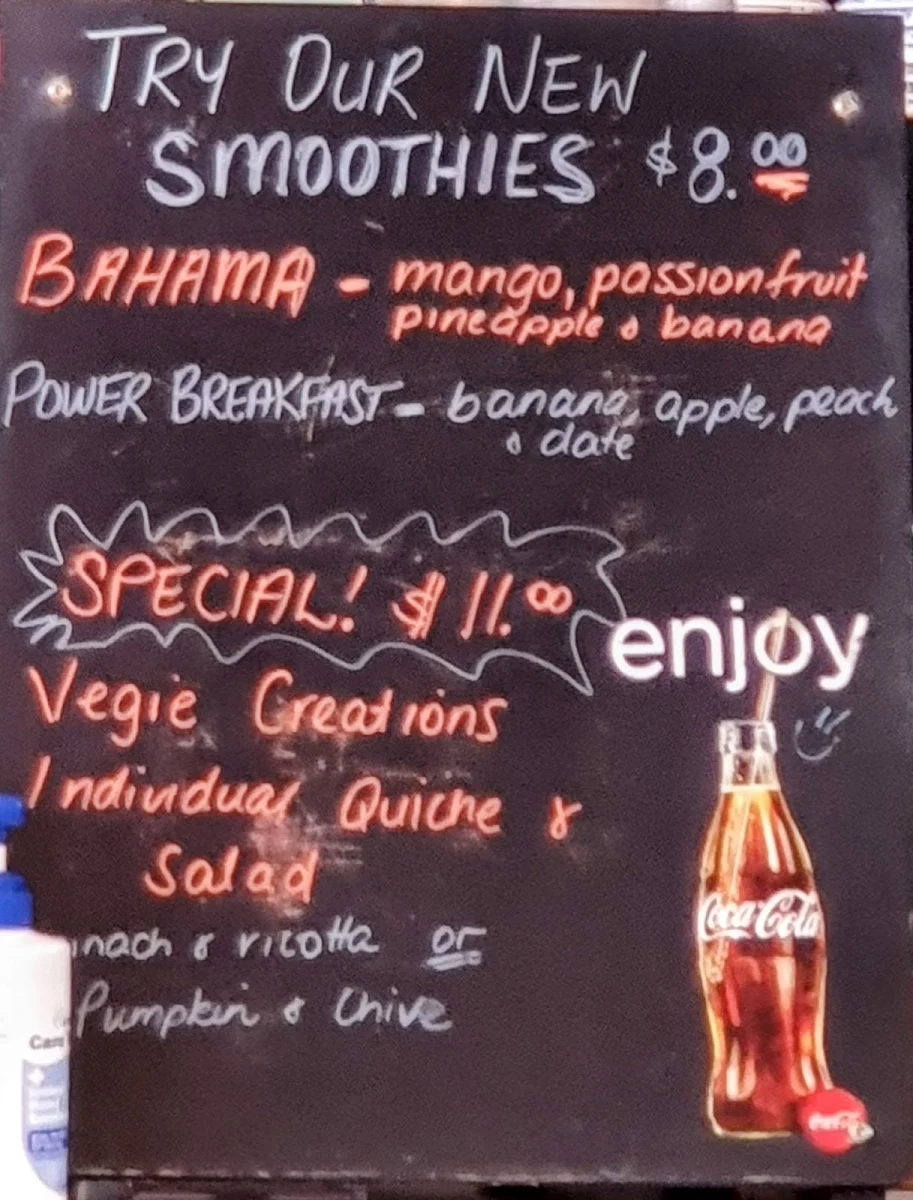 TRY OUR NEW
SMOOTHIES $8.00
BAHAMA - mango, passionfruit
pineapple & banana
POWER BREAKFAST - banana, apple, peach
& date
SPECIAL! $11.00
enjoy
Vegie Creations
Individual Quiche &
Salad
inach & ricotta or
Pumpkin & Chive
Coca-Cola
Care
Coca-Cola